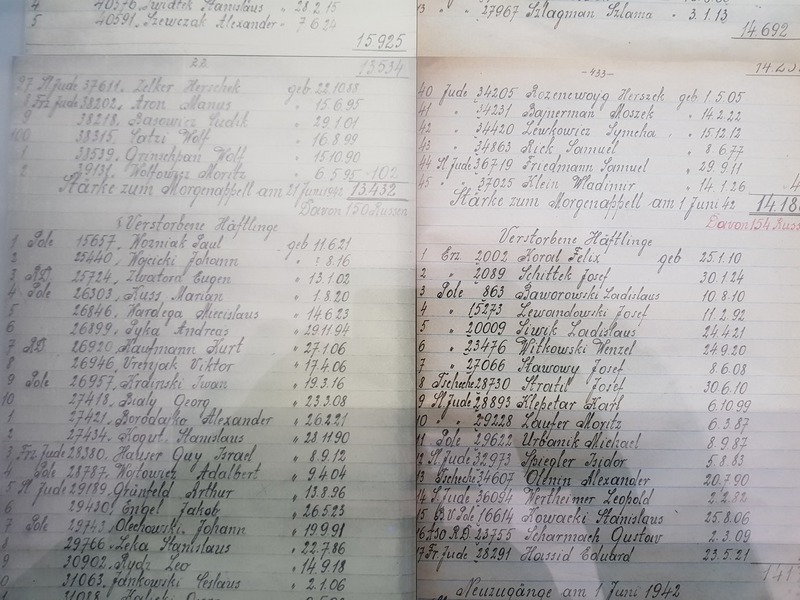 4 " 40576 Swidtek Stanislaus " 28.2.15
5 " 40591. Szewczak Alexander " 7.6.24
15.925
13534
97 Sl. Jude 37611. Zelker Herschek geb. 22.10.88
8 Frz. Jude 38202. Aron Manus " 15.6.95
9 " 38218. Basowicz Judik " 29.1.01
100 " 38315. Satzi Wolf " 16.8.99
1 " 38539. Grinschpan Wolf " 15.10.90
2 " 39131. Wolfowicz Moritz " 6.5.95 -102
Stärke zum Morgenappell am 21 Juni 1942 13.432
Davon 150 Russen
Verstorbene Häftlinge
1 Pole 15657. Wozniak Paul geb 11.6.21
2 " 25440. Wojcicki Johann 8.16
3 R.D. 25724. Zlvatora Eugen " 13.1.02
4 Pole 26303. Kuss Marian " 1.8.20
5 " 26846. Waradega Miecislaus " 14.6.23
6 " 26899. Pyka Andreas " 29.11.94
7 R.D. 26920. Kaufmann Kurt " 27.1.06
8 " 26946. Vrtnjak Viktor " 17.4.06
9 Pole 26957. Krainski Iwan " 19.3.16
10 " 27418. Bialy Georg " 23.3.08
1 " 27421. Borodajko Alexander " 26.2.21
2 " 27434. Kogut Stanislaus " 28.11.90
3 Frz. Jude 28380. Halser Guy Israel " 8.9.12
4 Pole 28787. Wojtowicz Adalbert " 9.4.04
5 Sl. Jude 29189. Grünfeld Arthur " 13.8.96
6 " 29430. Engel Jakob " 26.5.23
7 Pole 29743. Olechowski Johann " 19.9.91
8 " 29766. Leka Stanislaus " 22.7.86
9 " 30902. Rydz Leo " 14.9.18
0 " 31063. Jankowski Ceslaus " 2.1.06
13 " 27967 Szlagman Szlama " 3.1.13
14.692
-433-
40 Jude 34205 Rozenewoyg Herszek geb 1.5.05
41 " 34231 Bajnerman Moszek " 14.2.22
42 " 34420 Lewkowicz Symcha " 15.12.12
43 " 34863 Rick Samuel " 8.6.77
44 Sl Jude 36719 Friedmann Samuel " 29.9.11
45 " 37025 Klein Wladimir " 14.1.26
Stärke zum Morgenappell am 1 Juni 42 14.18
Davon 154 Russ
Verstorbene Häftlinge
1 Erz. 2002 Koral Felix geb 25.1.10
2 " 2089 Schittek Josef 30.1.24
3 Pole 863 Baworowski Ladislaus 10.8.10
4 " 15273 Lewandowski Josef 11.2.92
5 " 20009 Siwik Ladislaus 24.4.21
6 " 23476 Witkowski Wenzel 24.9.20
7 " 27066 Stawowy Josef 8.6.08
8 Tscheche 28730 Stratil Josef 30.6.10
9 Sl. Jude 28893 Klepetar Karl 6.10.99
10 " 29228 Läufer Moritz 6.3.87
11 Pole 29622 Urbanik Michael 8.9.87
12 Sl. Jude 32973 Spiegler Isidor 5.8.83
13 Tscheche 34607 Olenin Alexander 20.7.90
14 Sl. Jude 36094 Wertheimer Leopold 2.2.82
15 B.V. Pole 16614 Kowacki Stanislaus 25.8.06
16 Aso R.D. 23755 Scharmach Gustav 2.3.09
17 Fr. Jude 28291 Hassid Eduard 23.5.21
Neuzugänge am 1 Juni 1942